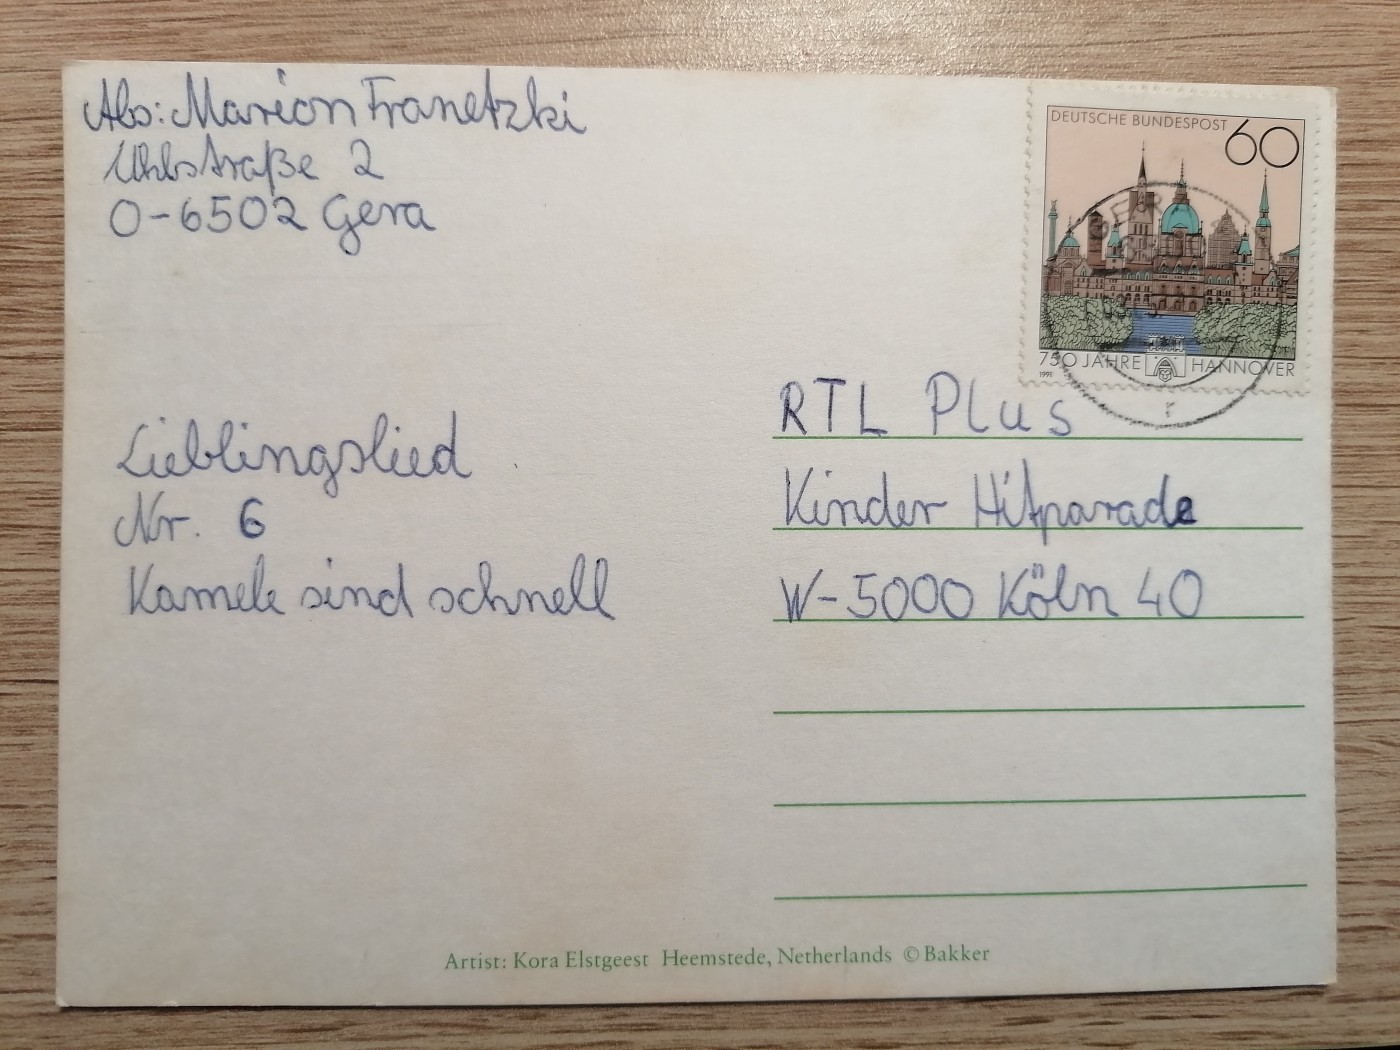 Abs: Marion Franetzki
straße 2
O-6502 Gera
DEUTSCHE BUNDESPOST
60
750 JAHRE HANNOVER
1991
RTL Plus
Kinder Hitparade
W-5000 Köln 40
Lieblingslied
Nr. 6
Kamele sind schnell
Artist: Kora Elstgeest Heemstede, Netherlands © Bakker